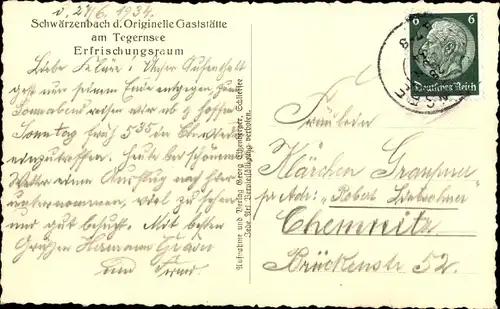 d. 21/6. 1934.
Schwärzenbach d. Originelle Gaststätte
am Tegernsee
Erfrischungsraum
Liebe Unser Aufenthalt
geht nun seinem Ende entgegen
Sonnabend reisen wir ab & hoffen
Sonntag früh 5 35 in
einzutreffen. Heute bei schönem
Wetter einen Ausflug nach hier
unternommen, viel zu sehen
und gut besucht. Mit besten
Grüßen Hermann
und
Aufnahme und Verlag Georg Schliersee
Jede Art Vervielfältigung verboten.
6 6
Deutsches Reich
Fräulein
Klärchen
pr Adr: "Robert
Chemnitz
Brückenstr 52.